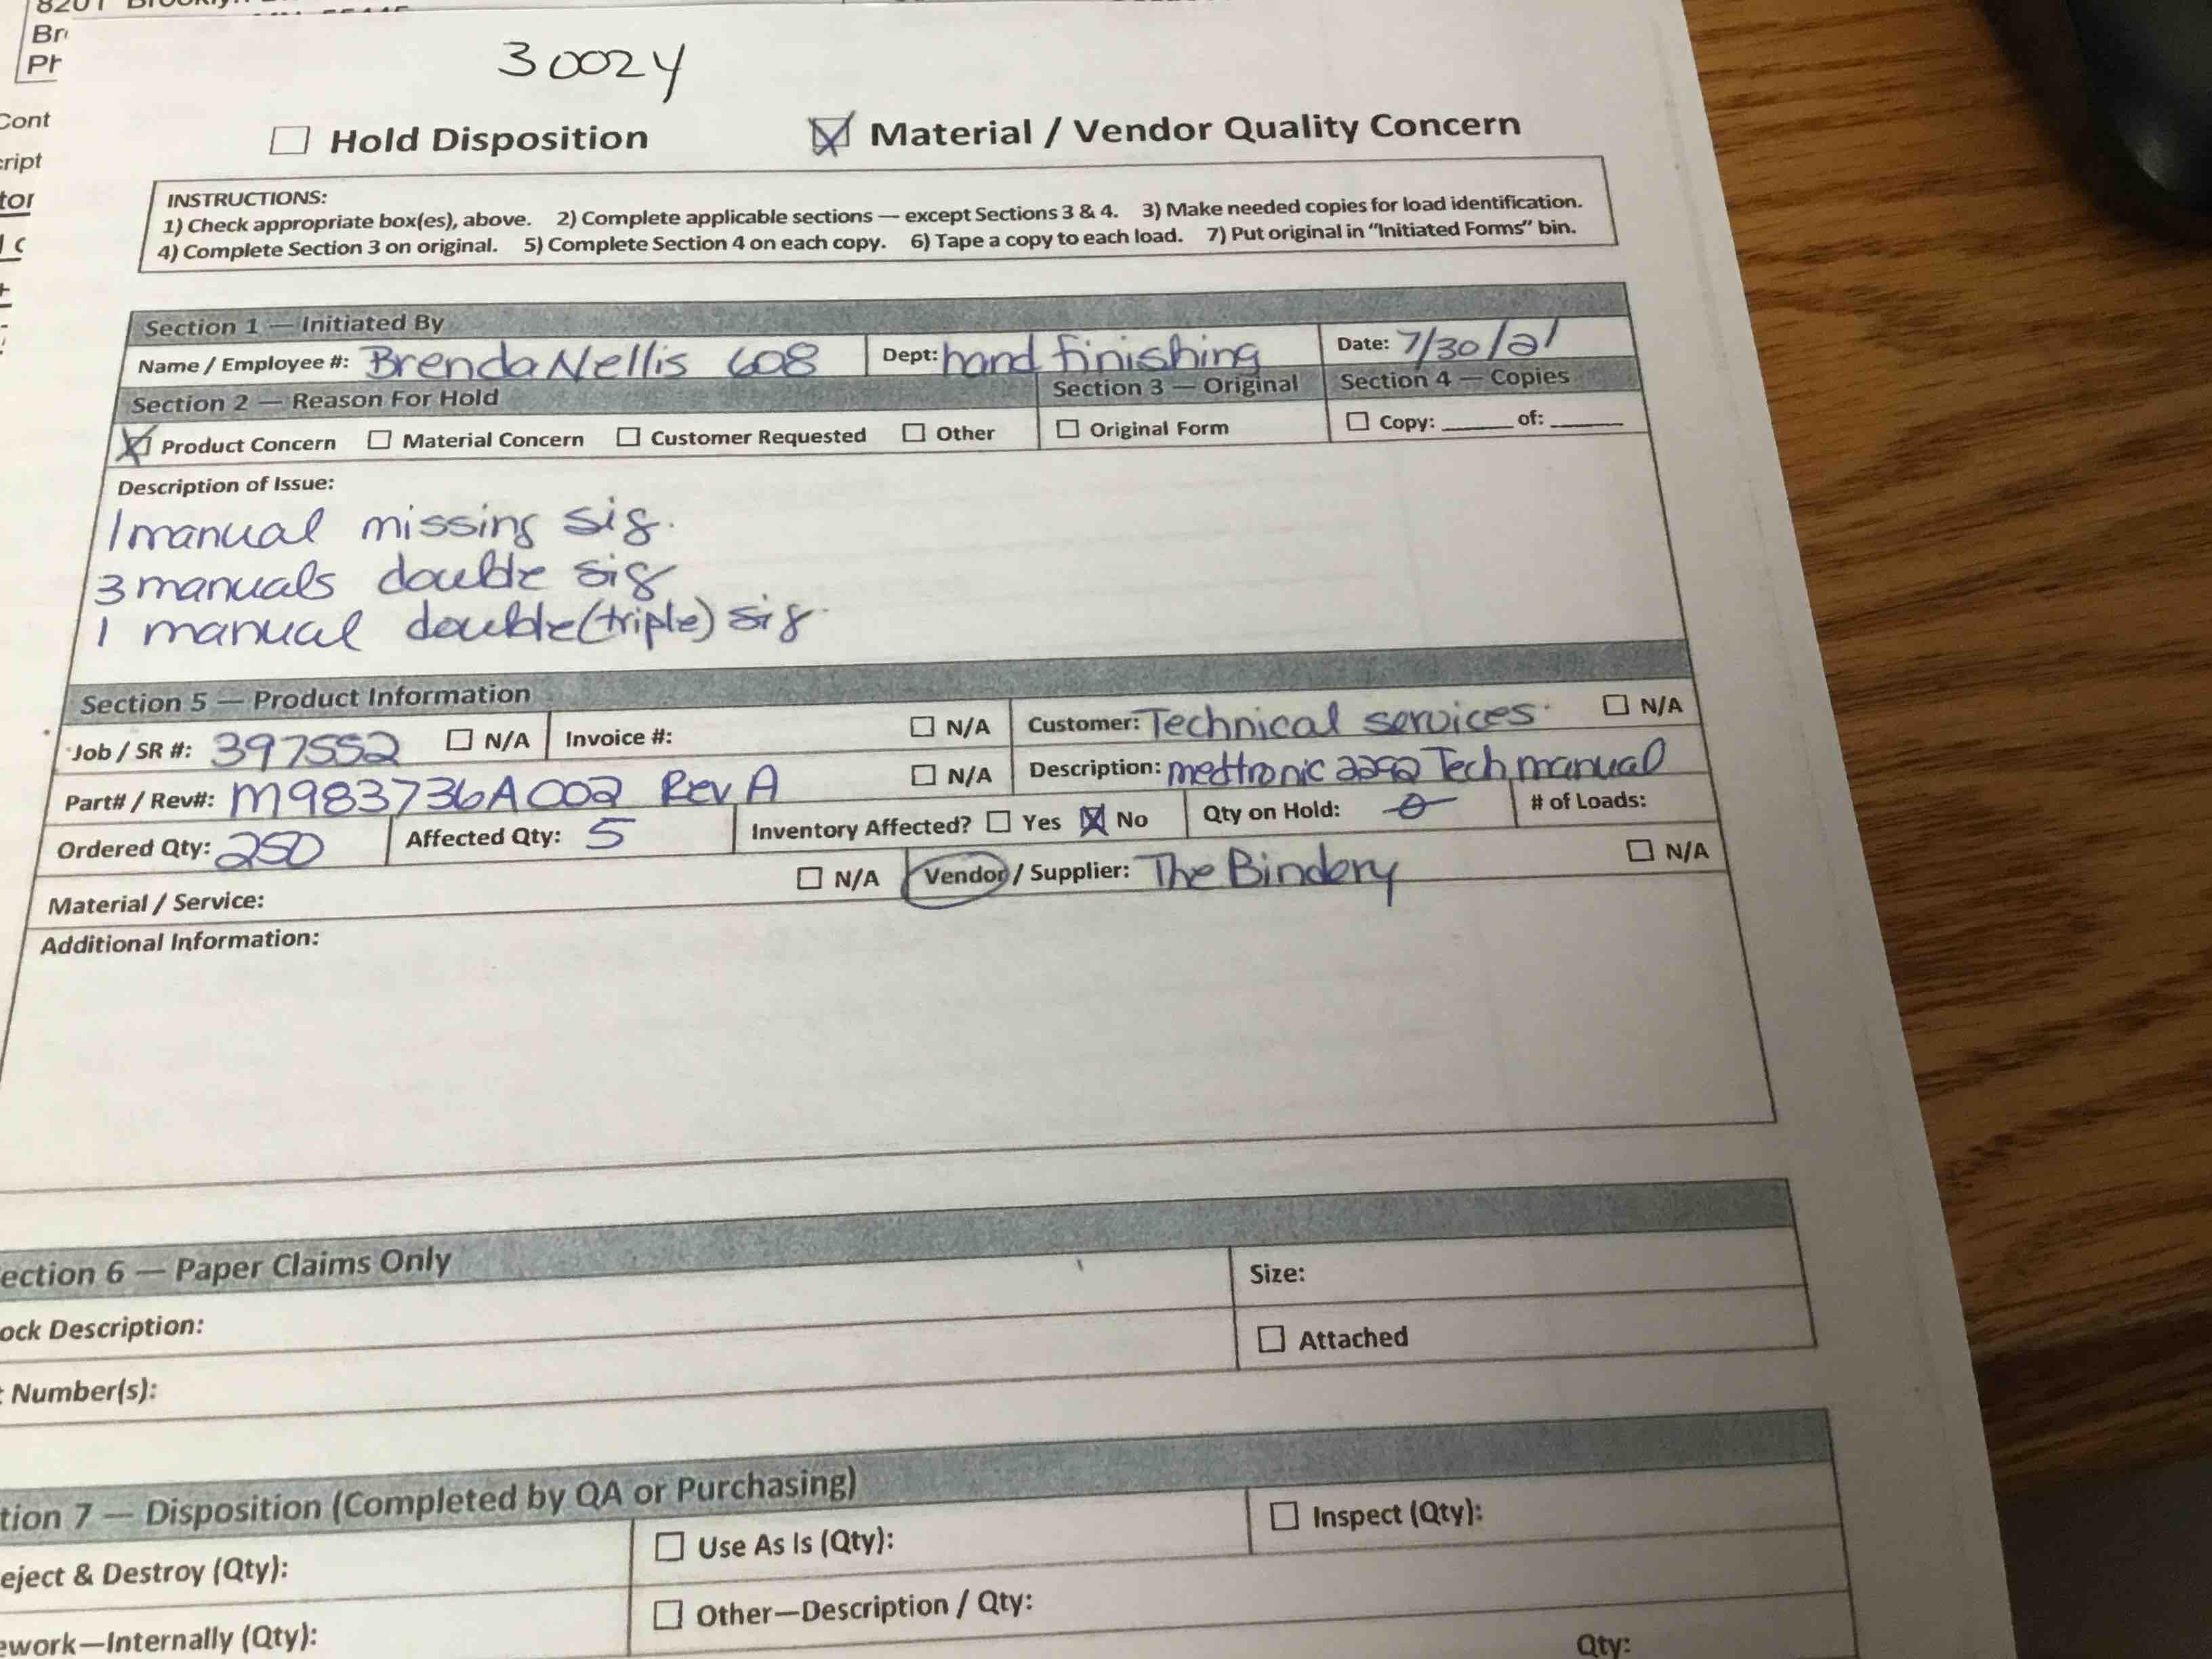 8201 Brooklyn
Br
Ph
Cont
cript
tor
30024
Hold Disposition
Material / Vendor Quality Concern
INSTRUCTIONS:
1) Check appropriate box(es), above. 2) Complete applicable sections — except Sections 3 & 4. 3) Make needed copies for load identification.
4) Complete Section 3 on original. 5) Complete Section 4 on each copy. 6) Tape a copy to each load. 7) Put original in "Initiated Forms" bin.
Section 1 — Initiated By
Name / Employee #: Brenda Nellis 608 Dept: hand finishing Date: 7/30/21
Section 2 — Reason For Hold Section 3 — Original Section 4 — Copies
Product Concern Material Concern Customer Requested Other Original Form Copy: ______ of: ______
Description of Issue:
1 manual missing sig.
3 manuals double sig
1 manual double (triple) sig.
Section 5 — Product Information
Job / SR #: 397552 N/A Invoice #: N/A Customer: Technical services N/A
Part# / Rev#: M983736A002 Rev A N/A Description: medtronic 2292 Tech manual
Ordered Qty: 250 Affected Qty: 5 Inventory Affected? Yes No Qty on Hold: 0 # of Loads:
Material / Service: N/A Vendor / Supplier: The Bindery N/A
Additional Information:
ection 6 — Paper Claims Only
ock Description: Size:
Number(s): Attached
tion 7 — Disposition (Completed by QA or Purchasing)
eject & Destroy (Qty): Use As Is (Qty): Inspect (Qty):
ework—Internally (Qty): Other—Description / Qty:
Qty: